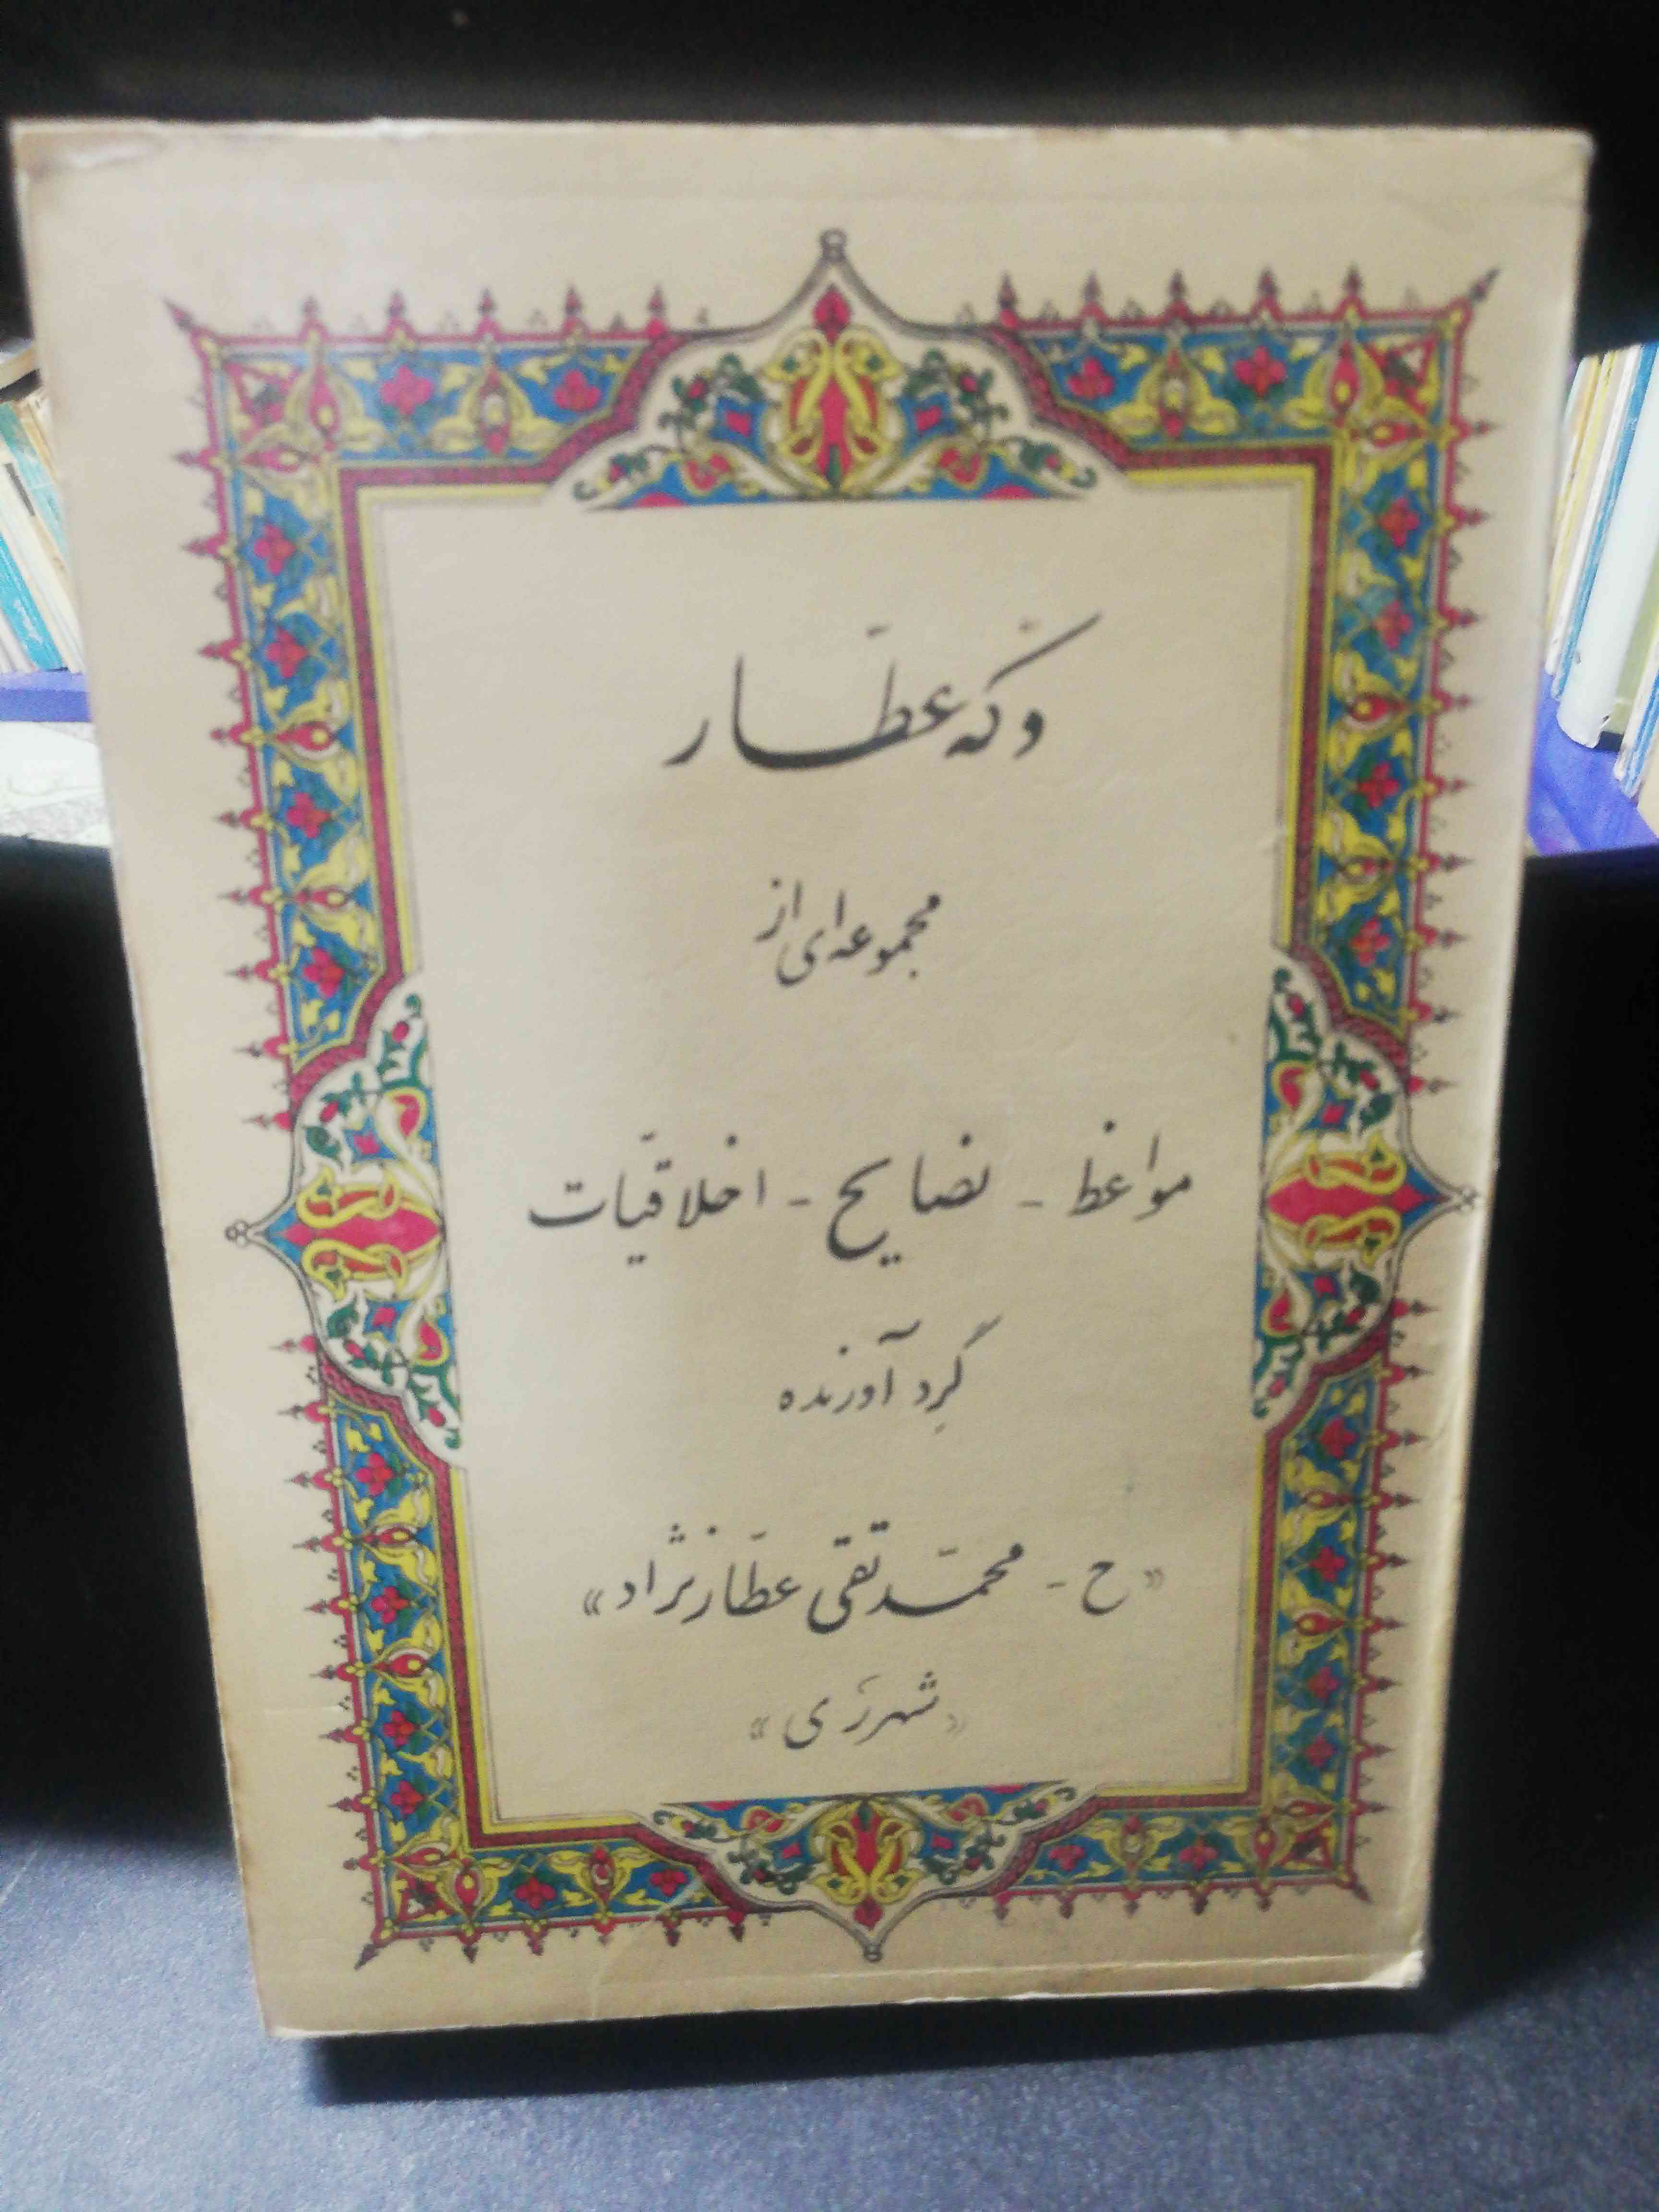 دکه عطّار
مجموعه‌ای از
مواعظ - نصایح - اخلاقیّات
گِردآورنده
«ح - محمّدتقی عطّارنژاد»
«شهررَی»